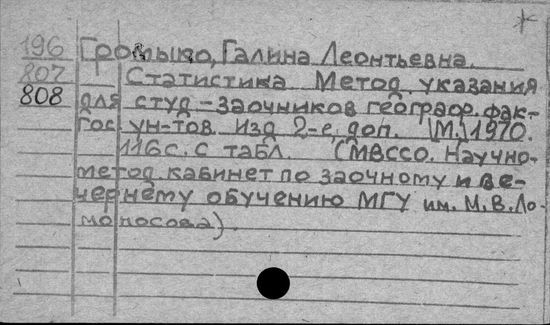 196 Громыко, Галина Леонтьевна.
807 Статистика. Метод. указания
808 для студ-заочников географ. фак-
Гос ун-тов. Изд 2-е, доп. [М.,]1970.
116с. с табл. (МВССО. Научно-
метод кабинет по заочному и ве-
чернему обучению МГУ им. М.В.Ло-
моносова)